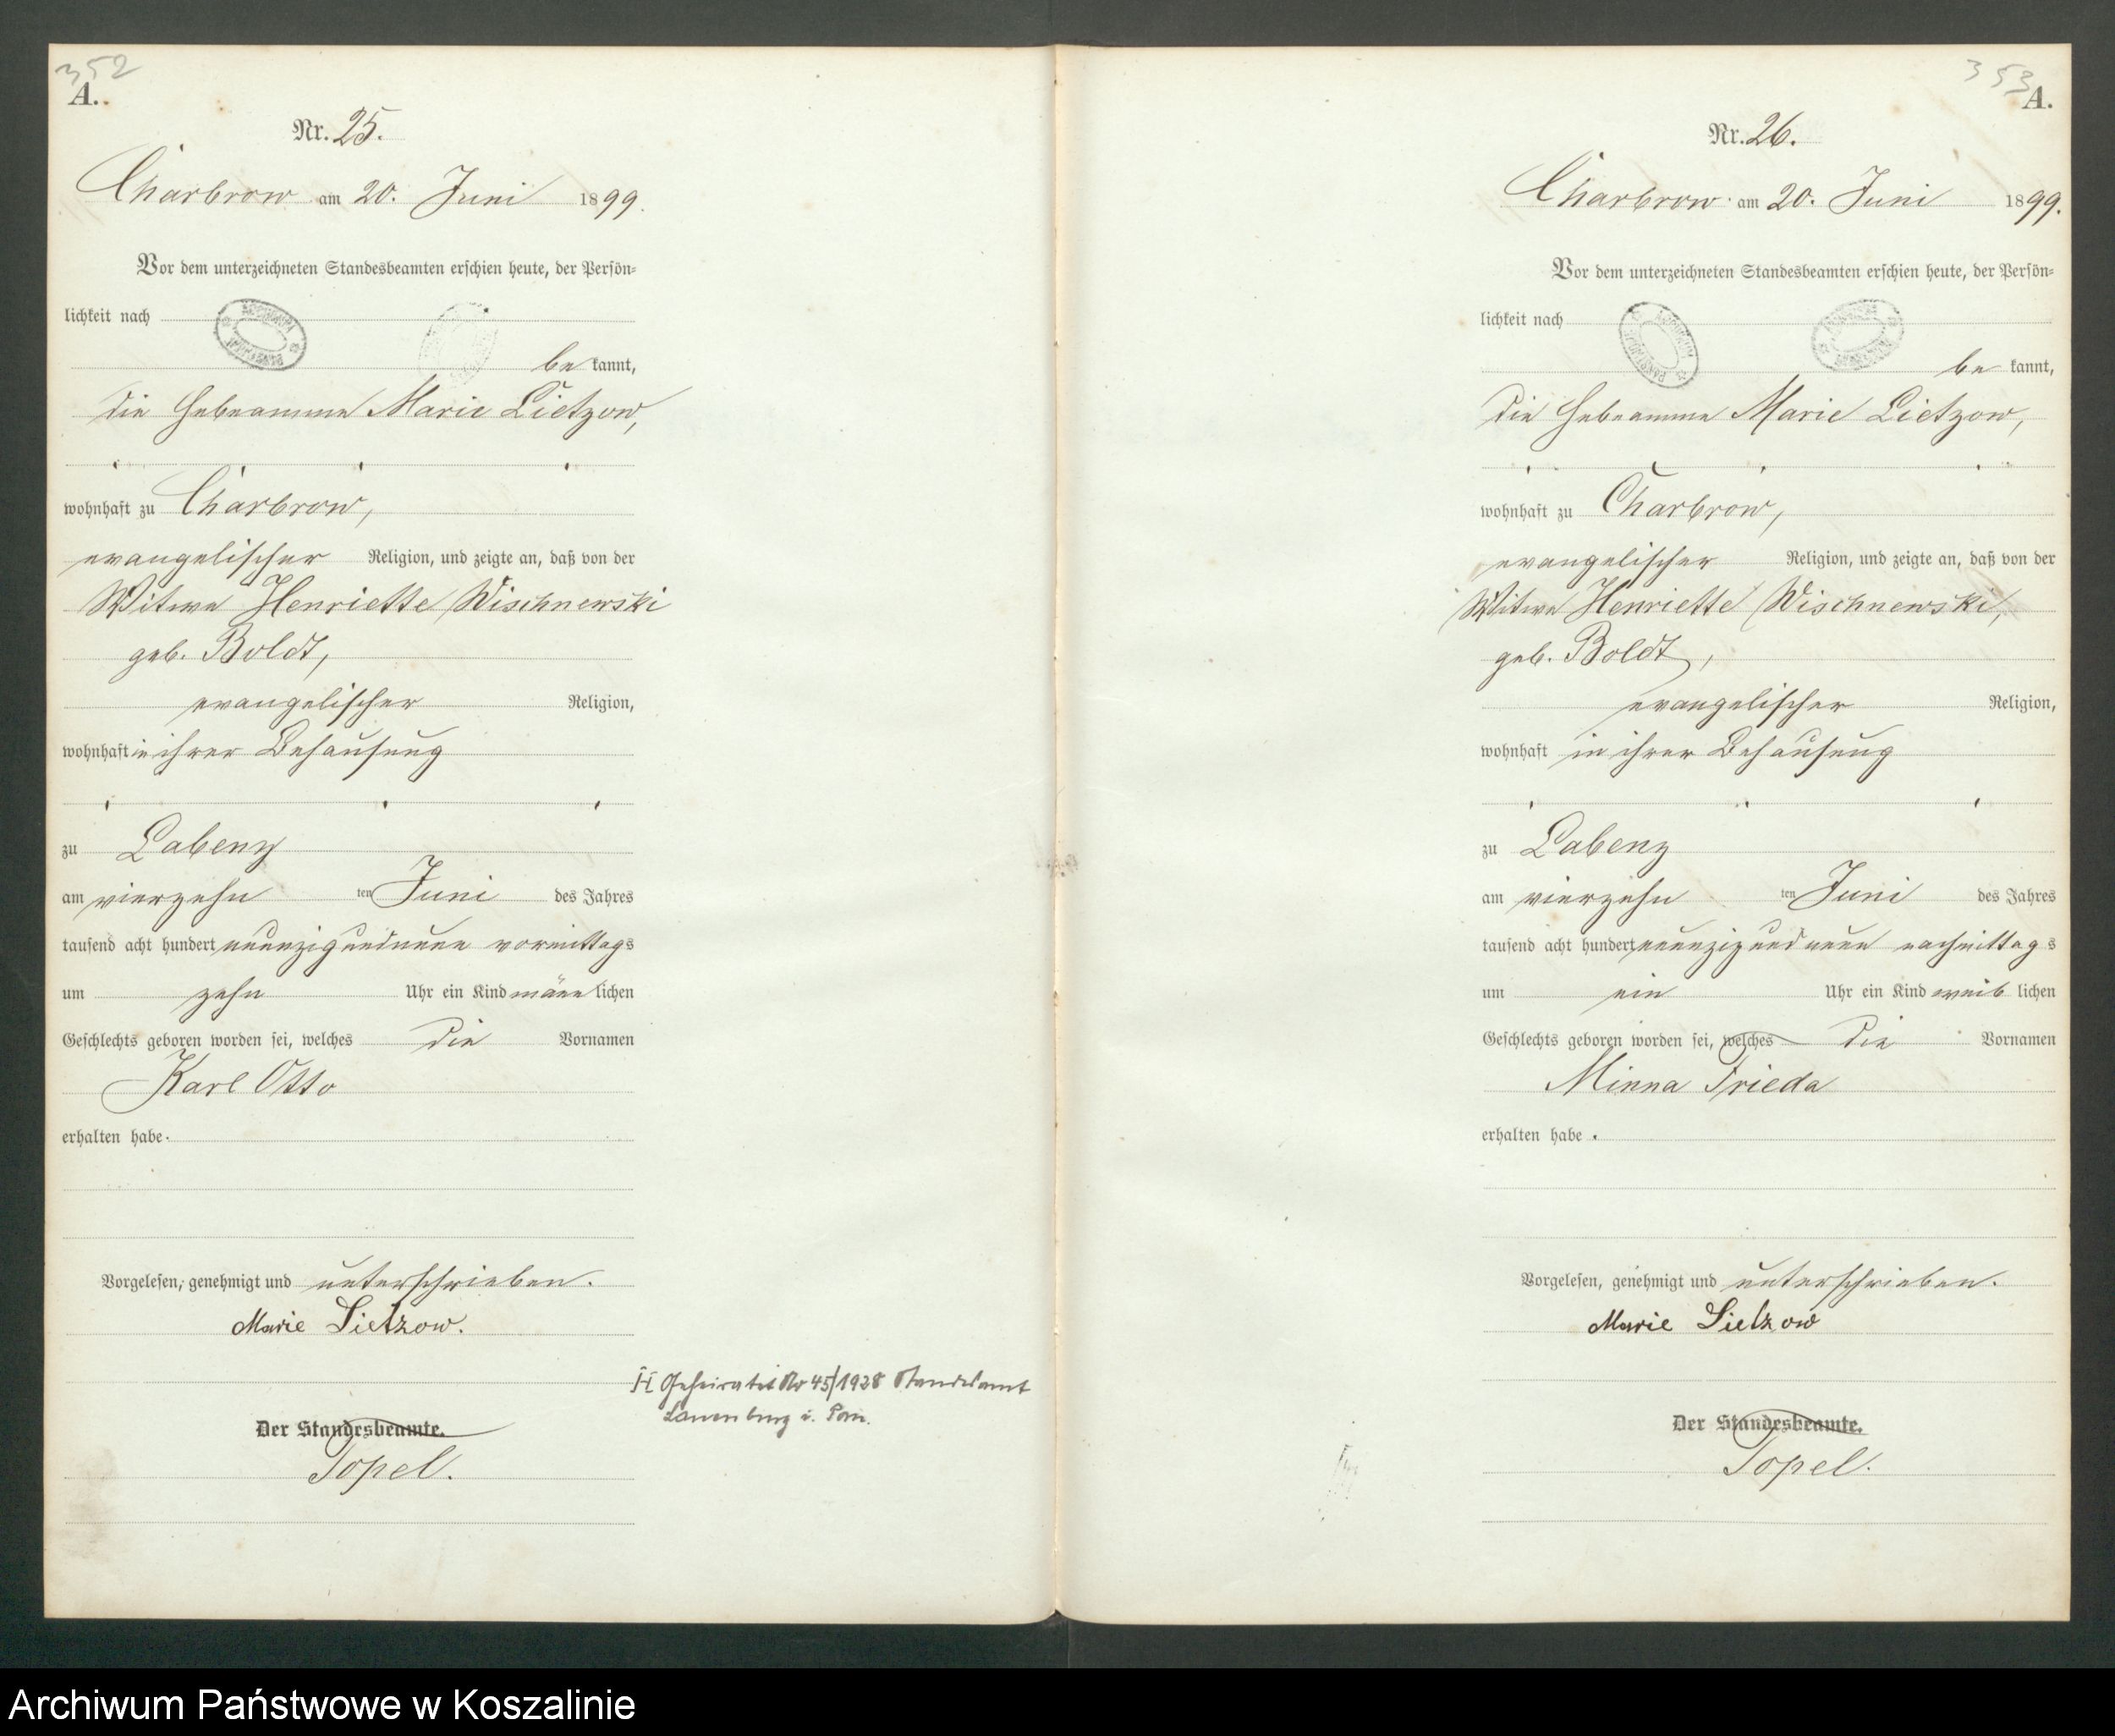 352
A.
Nr. 25.
Charbrow am 20. Juni 1899.
Vor dem unterzeichneten Standesbeamten erschien heute, der Persön-
lichkeit nach
bekannt,
die Hebeamme Marie Lietzow,
wohnhaft zu Charbrow,
evangelischer Religion, und zeigte an, daß von der
Witwe Henriette Wischnewski
geb. Boldt,
evangelischer Religion,
wohnhaft in ihrer Behausung
zu Labenz
am vierzehnten Juni des Jahres
tausend acht hundert neunzigundneun vormittags
um zehn Uhr ein Kind männlichen
Geschlechts geboren worden sei, welches die Vornamen
Karl Otto
erhalten habe.
Vorgelesen, genehmigt und unterschrieben.
Marie Lietzow.
H Geheiratet Nr 45/1928 Standesamt
Lauenburg i. Pom.
Der Standesbeamte.
Topel.
353
A.
Nr. 26.
Charbrow am 20. Juni 1899.
Vor dem unterzeichneten Standesbeamten erschien heute, der Persön-
lichkeit nach
bekannt,
die Hebeamme Marie Lietzow,
wohnhaft zu Charbrow,
evangelischer Religion, und zeigte an, daß von der
Witwe Henriette Wischnewski,
geb. Boldt,
evangelischer Religion,
wohnhaft in ihrer Behausung
zu Labenz
am vierzehnten Juni des Jahres
tausend acht hundert neunzigundneun nachmittags
um ein Uhr ein Kind weiblichen
Geschlechts geboren worden sei, welches die Vornamen
Minna Frieda
erhalten habe.
Vorgelesen, genehmigt und unterschrieben.
Marie Lietzow
Der Standesbeamte.
Topel.
Archiwum Państwowe w Koszalinie